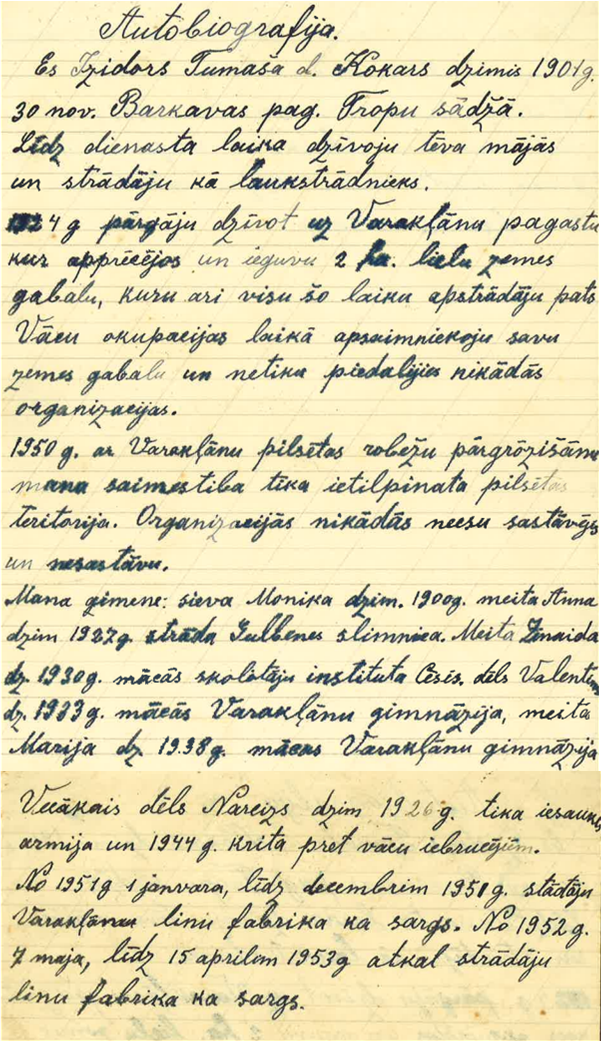 Autobiografija.
Es Izidors Tumaša d. Kokars dzimis 1901g.
30 nov. Barkavas pag. Tropu sādžā.
Līdz dienasta laika dzīvoju tēva mājās
un strādāju kā laukstrādnieks.
1924 g pārgāju dzīvot uz Varakļānu pagastu
kur apprēcējos un ieguvu 2 ha. lielu zemes
gabalu, kuru ari visu šo laiku apstrādāju pats
Vācu okupacijas laikā apsaimniekoju savu
zemes gabalu un netiku piedalijies nikādās
organizacijas.
1950 g. ar Varakļānu pilsētas robežu pārgrōzišānu
mana saimestiba tika ietilpinata pilsētas
teritorija. Organizacijās nikādās neesu sastāvējs
un nesastāvu.
Mana ģimene: sieva Monika dzim. 1900g. meita Anna
dzim 1927g. strāda Gulbenes slimnica. Meita Zinaida
dz. 1930g. mācās skolotāju instituta Cēsis. dēls Valentins
dz. 1933g. mācās Varakļānu gimnāzija, meita
Marija dz 1938g. mācas Varakļānu gimnāzija
Vecākais dēls Narcizs dzim 1926 g. tika iesaukts
armija un 1944 g. krita pret vācu iebrucējiem.
No 1951g 1 janvara, līdz decembrim 1951g. stādāju
Varakļānu linu fabrika ka sargs. No 1952 g.
7 maja, līdz 15 aprilam 1953g atkal strādāju
linu fabrika ka sargs.